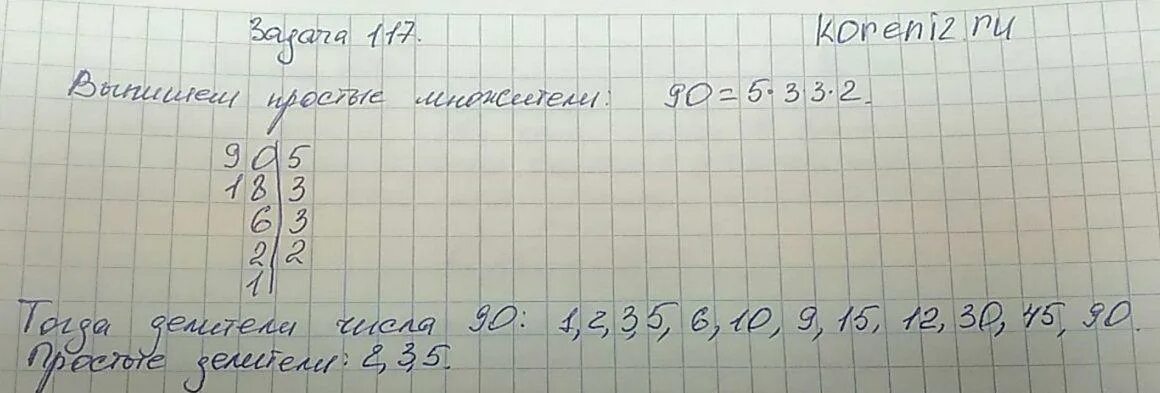 Задача 117. koreniz.ru
Выпишем простые множители: 90=5·3 3·2.
90|5
18|3
6|3
2|2
1|
Тогда делители числа 90: 1,2,3,5, 6,10, 9,15, 12,30,45, 90.
Простые делители: 2,3,5.